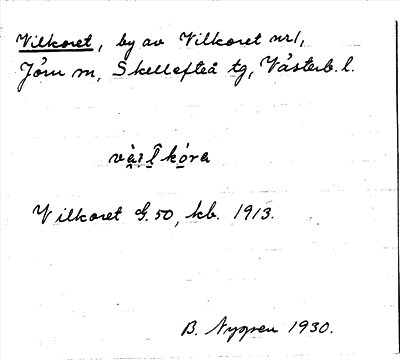 Vilkoret, by av Vilkoret nr1,
Jörn m, Skellefteå tg, Västerb. l.
Vilkoret G. 50, kb. 1913.
B. Nygren 1930.